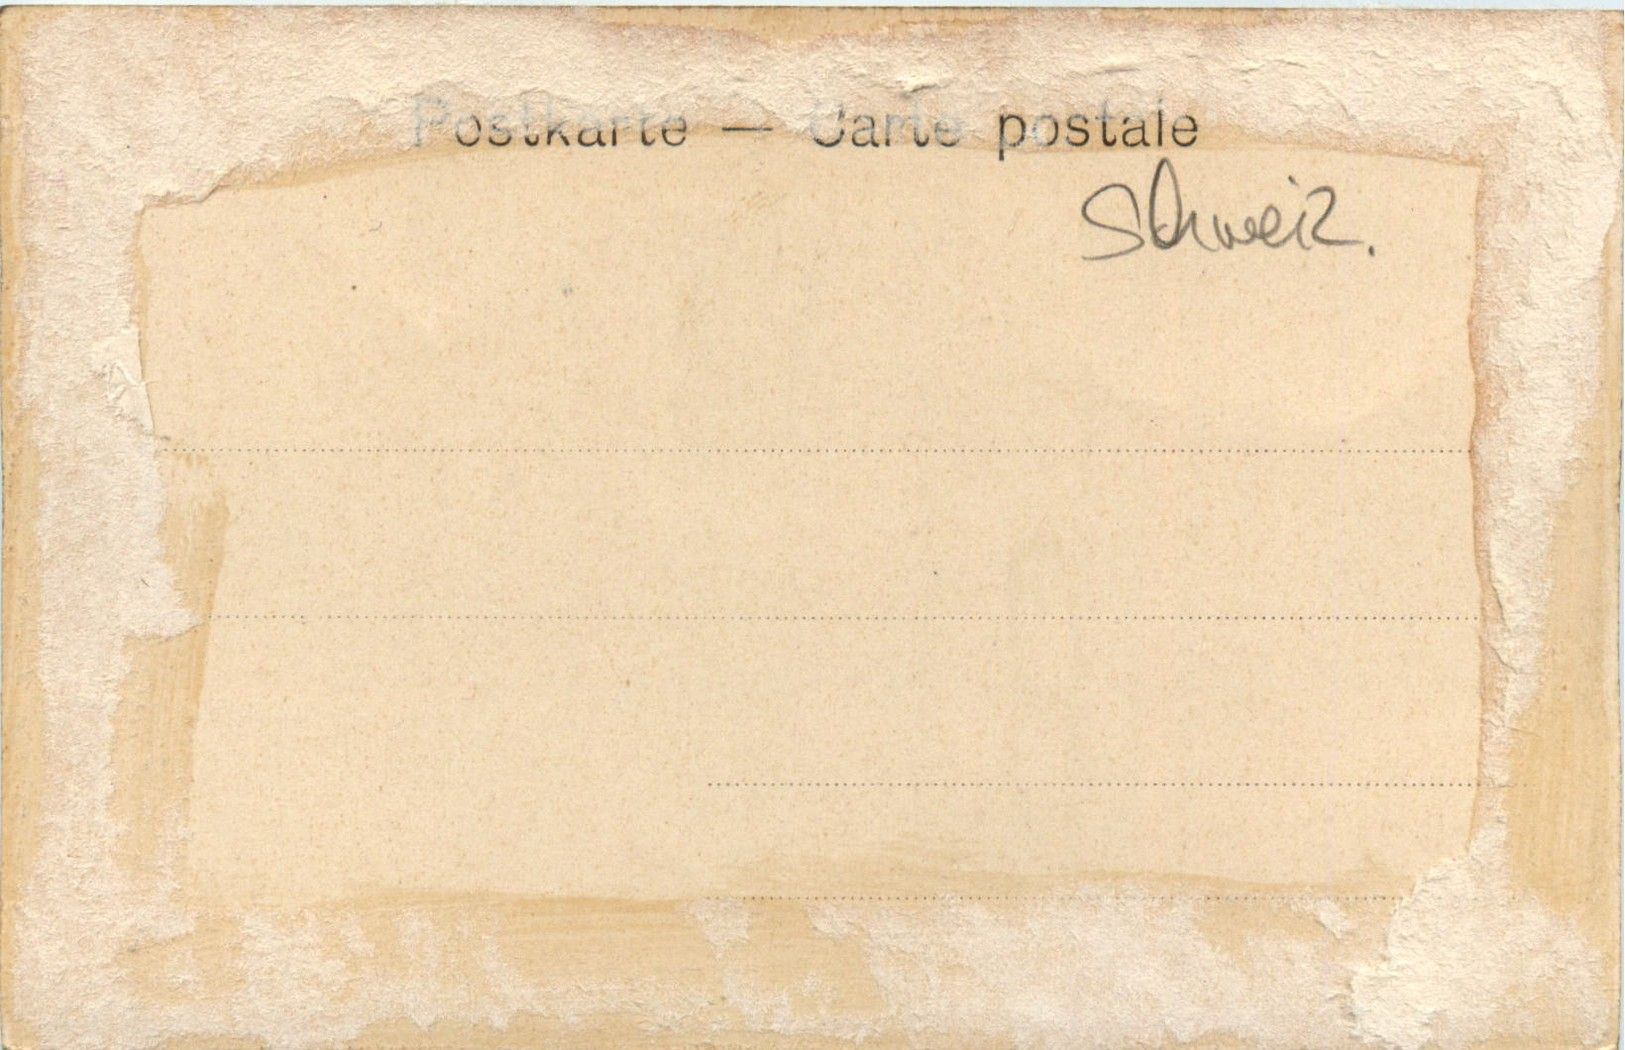 Postkarte — Carte postale
Schweiz.